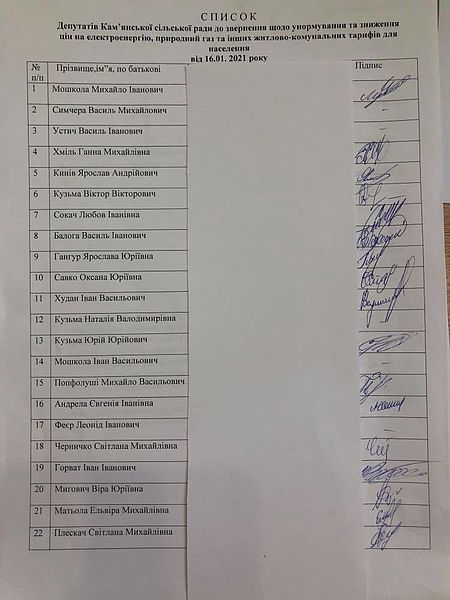 СПИСОК
Депутатів Кам'янської сільської ради до звернення щодо унормування та зниження
цін на електроенергію, природний газ та інших житлово-комунальних тарифів для
населення
від 16.01. 2021 року
№ п/п Прізвище,ім"я, по батькові Підпис
1 Мошкола Михайло Іванович
2 Симчера Василь Михайлович -
3 Устич Василь Іванович -
4 Хміль Ганна Михайлівна
5 Кинів Ярослав Андрійович
6 Кузьма Віктор Вікторович
7 Сокач Любов Іванівна
8 Балога Василь Іванович
9 Гангур Ярослава Юріївна
10 Савко Оксана Юріївна
11 Худан Іван Васильович
12 Кузьма Наталія Валодимирівна -
13 Кузьма Юрій Юрійович
14 Мошкола Іван Васильович -
15 Попфолуші Михайло Васильович
16 Андрела Євгенія Іванівна
17 Феєр Леонід Іванович -
18 Черничко Світлана Михайлівна
19 Горват Іван Іванович
20 Мигович Віра Юріївна
21 Матьола Ельвіра Михайлівна
22 Плескач Світлана Михайлівна